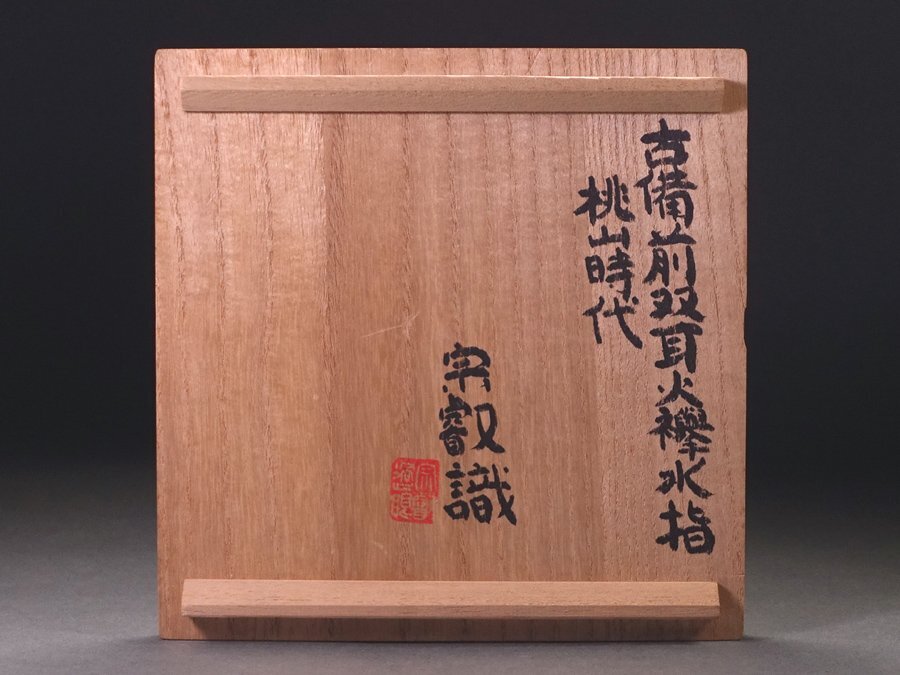 古備前双耳火襷水指
桃山時代
宗叡識